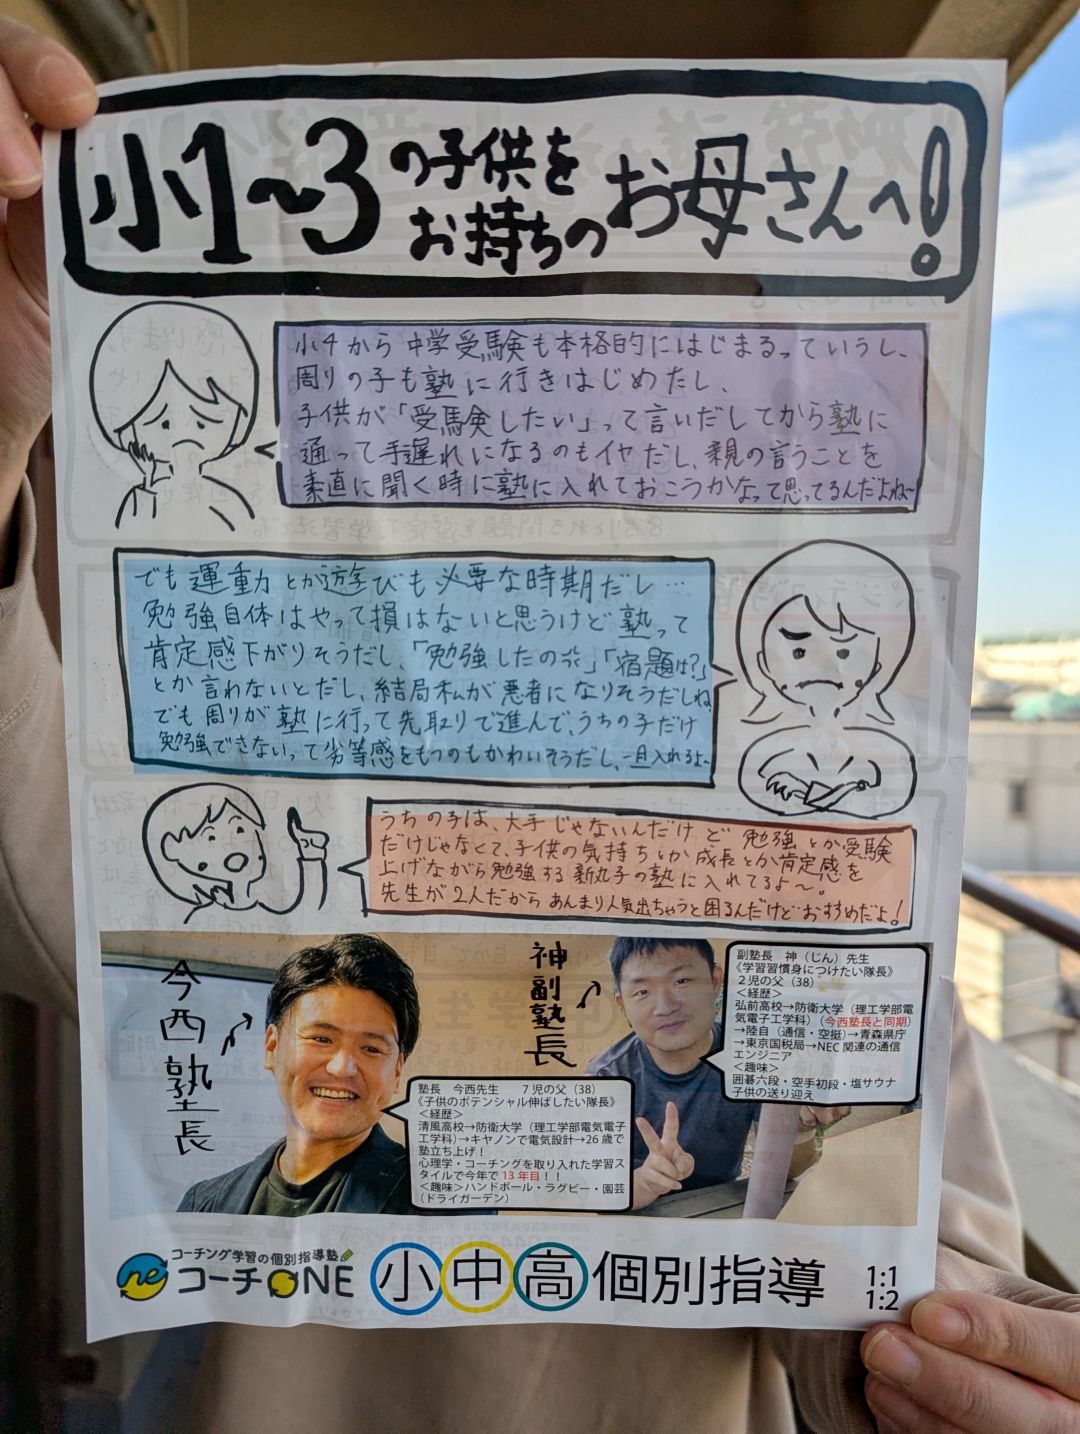 小1~3の子供をお持ちのお母さんへ!
小4から中学受験も本格的にはじまるっていうし、
周りの子も塾に行きはじめたし、
子供が「受験したい」って言いだしてから塾に
通って手遅れになるのもイヤだし、親の言うことを
素直に聞く時に塾に入れておこうかなって思ってるんだよね~
でも運動とか遊びも必要な時期だし…
勉強自体はやって損はないと思うけど塾って
肯定感下がりそうだし、「勉強したの?」「宿題は?」
とか言わないとだし、結局私が悪者になりそうだしね、
でも周りが塾に行って先取りで進んで、うちの子だけ
勉強できないって劣等感をもつのもかわいそうだし、一旦入れるよ~
うちの子は、大手じゃないんだけど勉強とか受験
だけじゃなくて、子供の気持ちとか成長とか肯定感を
上げながら勉強する新丸子の塾に入れてるよ~。
先生が2人だからあんまり人気出ちゃうと困るんだけどおすすめだよ!
今西塾長
神副塾長
副塾長 神(じん)先生
《学習習慣身につけたい隊長》
2児の父(38)
<経歴>
弘前高校→防衛大学(理工学部電
気電子工学科)(今西塾長と同期)
→陸自(通信・空挺)→青森県庁
→東京国税局→NEC関連の通信
エンジニア
<趣味>
囲碁六段・空手初段・塩サウナ
子供の送り迎え
塾長 今西先生 7児の父(38)
《子供のポテンシャル伸ばしたい隊長》
<経歴>
清風高校→防衛大学(理工学部電気電子
工学科)→キヤノンで電気設計→26歳で
塾立ち上げ!
心理学・コーチングを取り入れた学習ス
タイルで今年で13年目!!
<趣味>ハンドボール・ラグビー・園芸
(ドライガーデン)
コーチング学習の個別指導塾
ne コーチONE
小中高個別指導
1:1
1:2